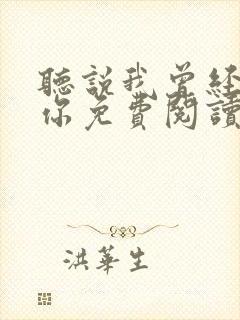 聽說我曾經
你免費閱讀
洪華生